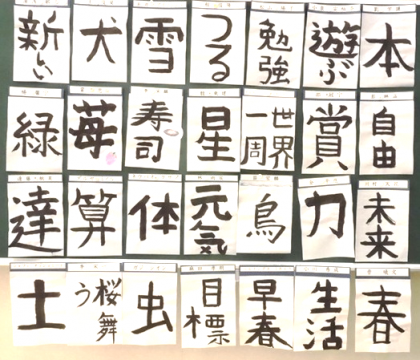 新しい
犬
雪
つる
勉強
遊ぶ
本
緑
苺
寿司
星
世界一周
賞
自由
達
算
体
元気
鳥
力
未来
土
桜舞う
虫
目標
早春
生活
春